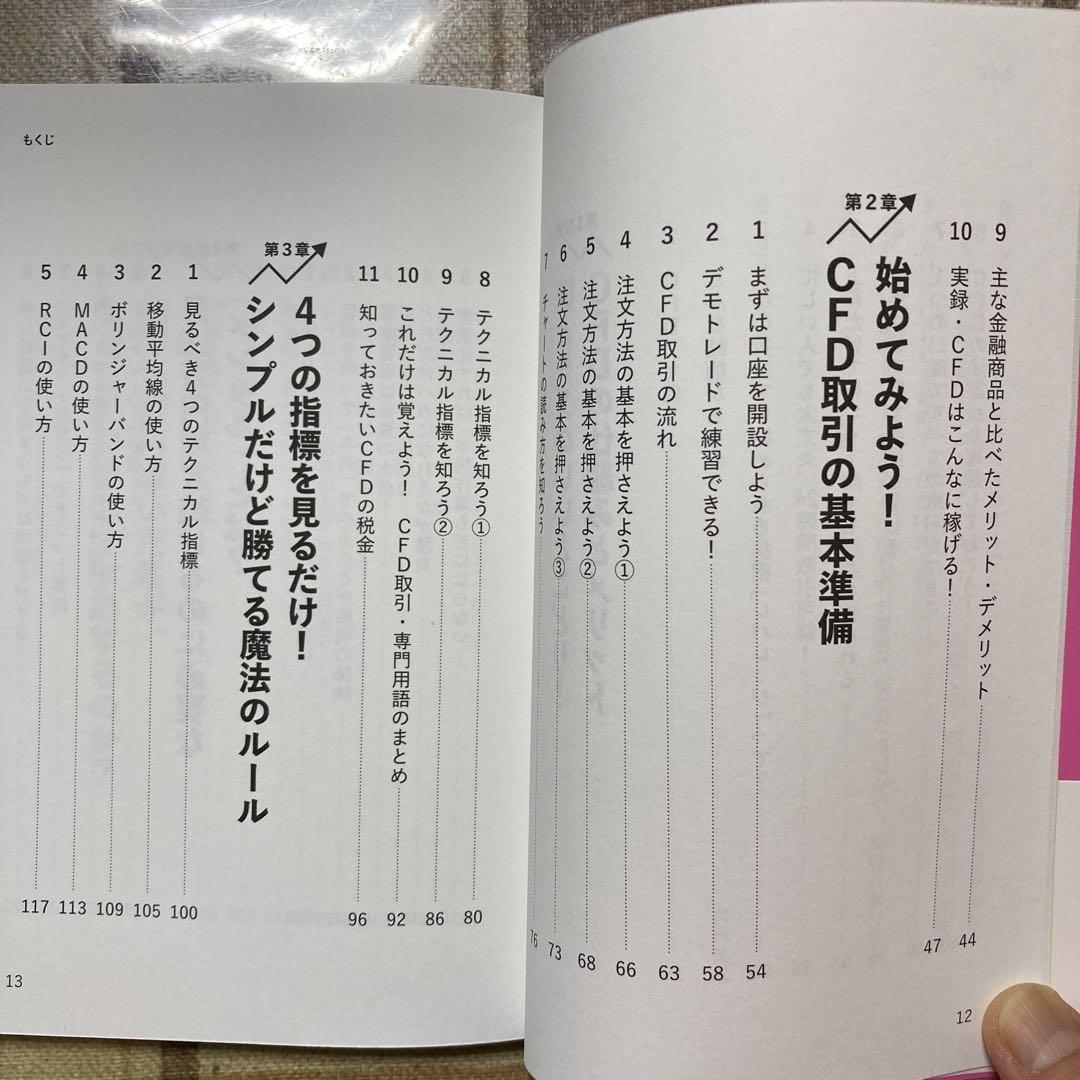 9 主な金融商品と比べたメリット・デメリット 44
10 実録・CFDはこんなに稼げる! 47
第2章
始めてみよう!
CFD取引の基本準備
1 まずは口座を開設しよう 54
2 デモトレードで練習できる! 58
3 CFD取引の流れ 63
4 注文方法の基本を押さえよう① 66
5 注文方法の基本を押さえよう② 68
6 注文方法の基本を押さえよう③ 73
7 チャートの読み方を知ろう 76
12
もくじ
8 テクニカル指標を知ろう① 80
9 テクニカル指標を知ろう② 86
10 これだけは覚えよう! CFD取引・専門用語のまとめ 92
11 知っておきたいCFDの税金 96
第3章
4つの指標を見るだけ!
シンプルだけど勝てる魔法のルール
1 見るべき4つのテクニカル指標 100
2 移動平均線の使い方 105
3 ボリンジャーバンドの使い方 109
4 MACDの使い方 113
5 RCIの使い方 117
13